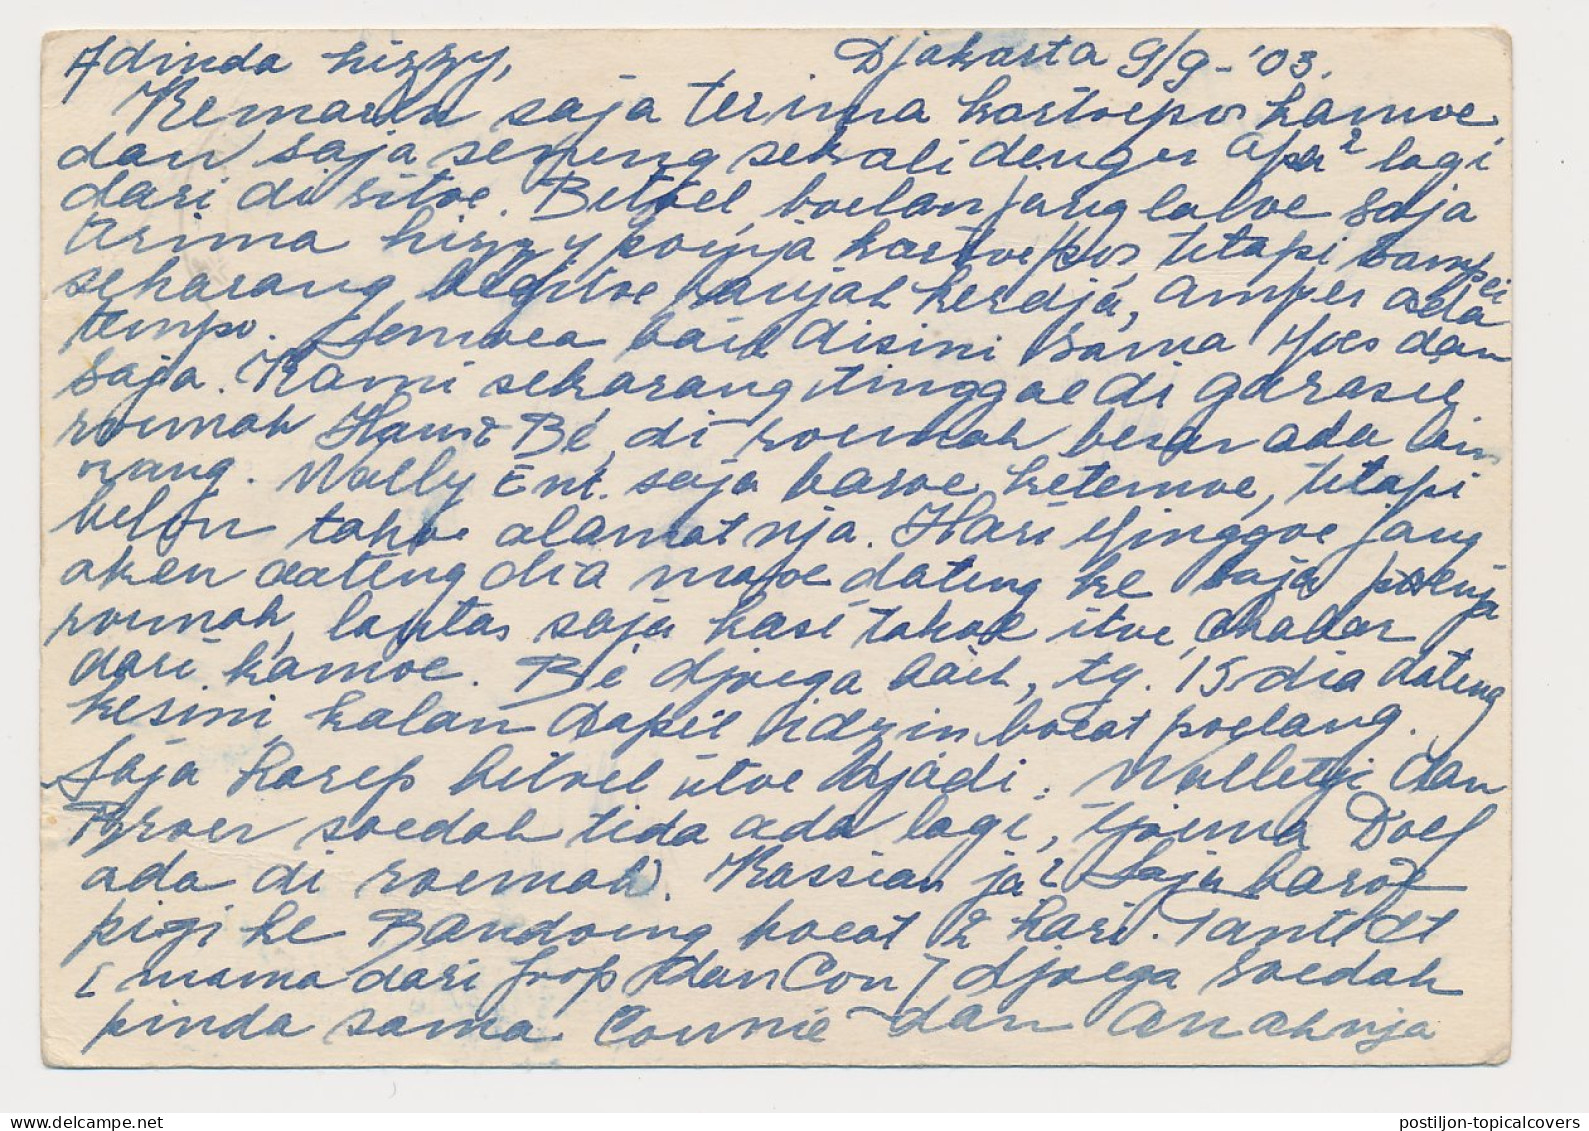 Adinda Lizzy, Djakarta 9/9-'03.
Kemaren saja terima kartoepos kamoe,
dan saja seneng sekali denger apa2 lagi
dari di sitoe. Betoel boelan jang laloe saja
terima Lizzy poenja kartoepos, tetapi sampei
sekarang begitoe banjak kerdja, amper ada
tempo. Semoea baik disini sama Moes dan
saja. Kami sekarang tinggal di garasie
roemah Bé, di roemah besar ada lain
orang. Wally Eni. saja baroe ketemoe, tetapi
belon tahoe alamatnja. Hari Minggoe jang
aken dateng dia maoe dateng ke saja poenja
roemah, lantas saja kasi tahoe itoe, chabar
dari kamoe. Bé djoega baik, tg. 15 dia dateng
kesini, kalau dapet idzin boeat poelang.
Saja harep betoel itoe djadi. Wulletji dan
Broer soedah tida ada lagi, tjoema Doef
ada di roemah. Kassian ja? Saja baroe
pigi ke Bandoeng boeat 2 hari. Tante Et
[mama dari Jrop dan Con] djoega soedah
pinda sama Connie dan anaknja
postiljon-topicalcovers